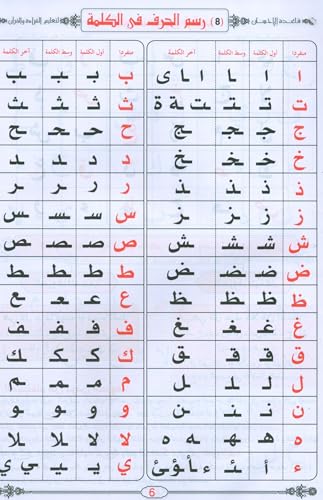 قاعدة الإحسان (8) رسم الحرف في الكلمة
منفردا اول الكلمة وسط الكلمة آخر الكلمة منفردا اول الكلمة وسط الكلمة آخر الكلمة
ا ا ـا ا ـا ى ب بـ ـبـ ـب
ت تـ ـتـ ـت ـة ة ث ثـ ـثـ ـث
ج جـ ـجـ ـج ح حـ ـحـ ـح
خ خـ ـخـ ـخ د د ـد ـد
ذ ذ ـذ ـذ ر ر ـر ـر
ز ز ـز ـز س سـ ـسـ ـس
ش شـ ـشـ ـش ص صـ ـصـ ـص
ض ضـ ـضـ ـض ط ط ـطـ ـط
ظ ظـ ـظـ ـظ ع عـ ـعـ ـع
غ غـ ـغـ ـغ ف فـ ـفـ ـف
ق قـ ـقـ ـق ك كـ ـكـ ـك
ل لـ ـلـ ـل م مـ ـمـ ـم
ن نـ ـنـ ـن و و ـو ـو
ه هـ ـهـ ـه ه لا لا ـلا ـلا
ء أ ئـ ء أ ؤ ئ ي يـ ـيـ ـي ي
6